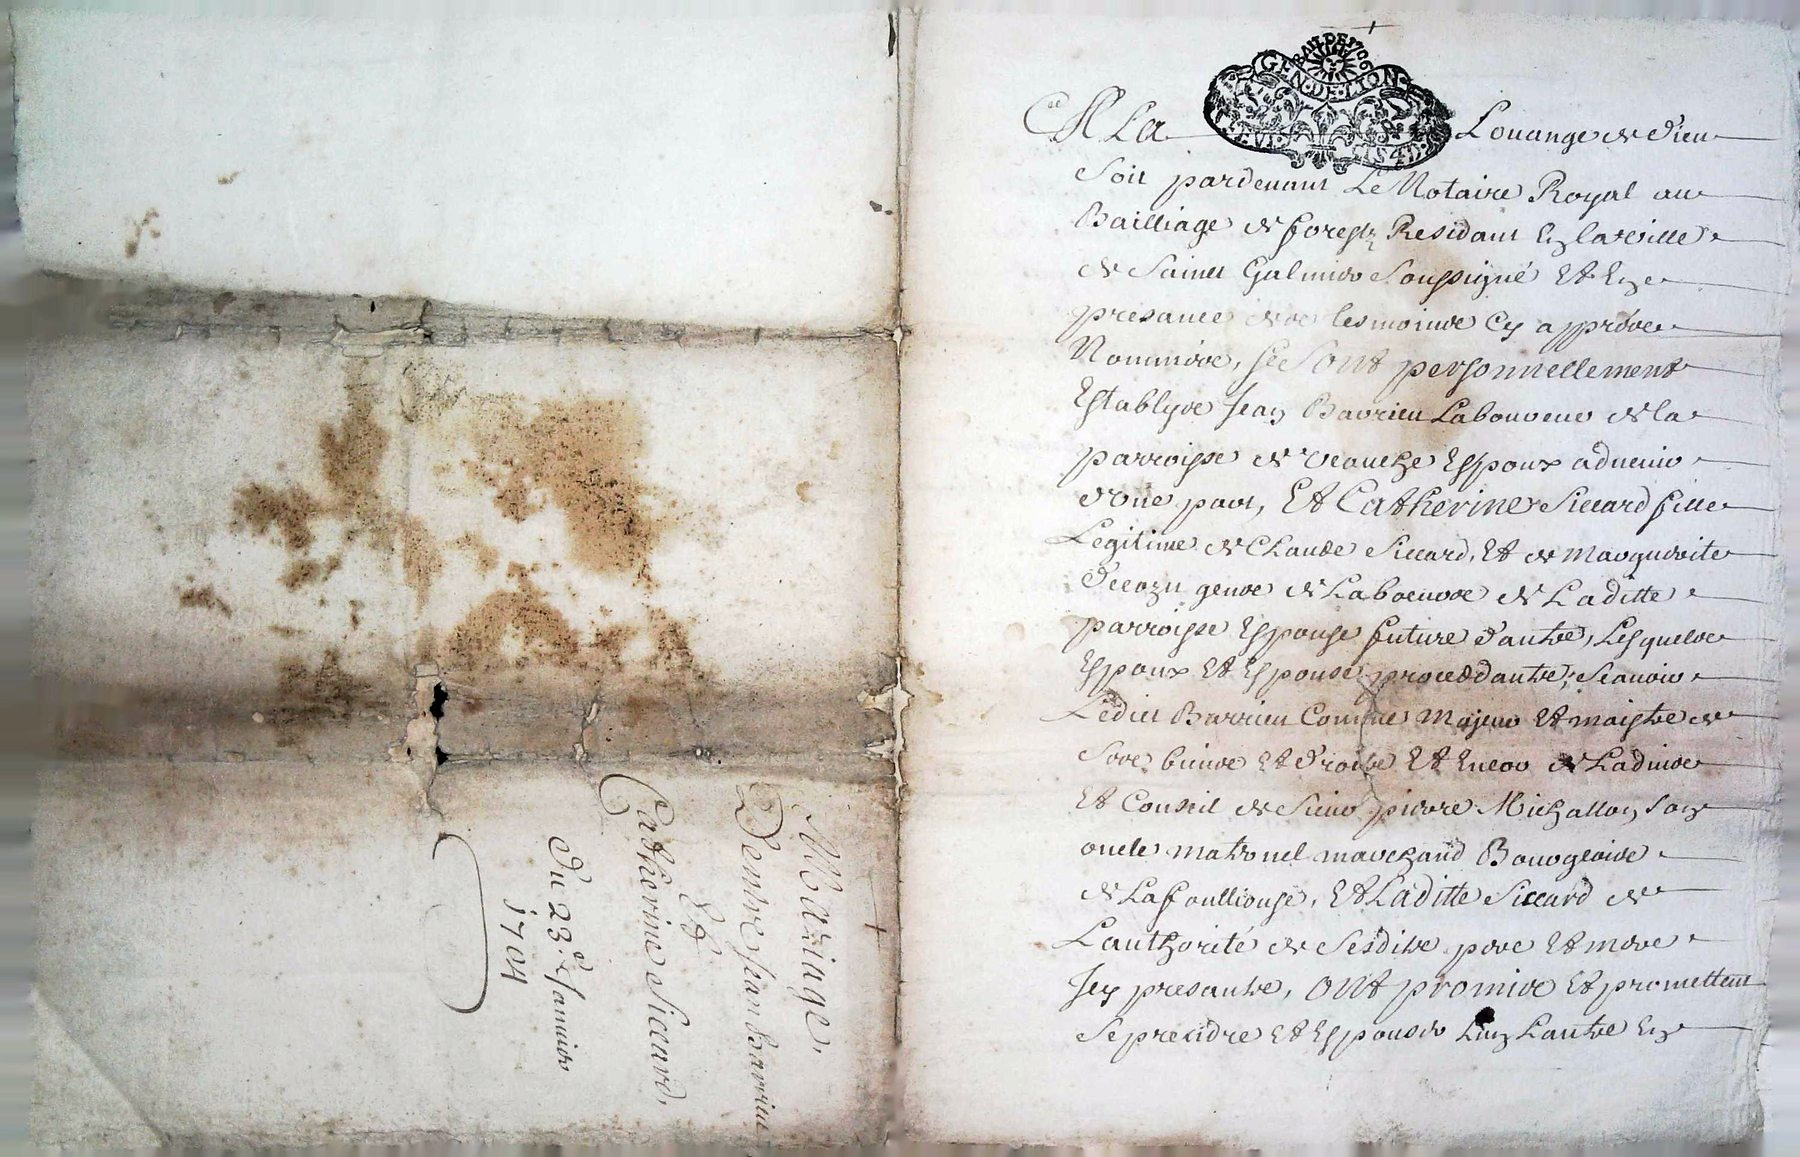 Mariage,
D'entre Jean Barrieu
Et
Catherine Siccard,
Du 23.e Januier
1704
BAIL DE 1706
GEN·DE·LION
A La Louange de Dieu
Soit pardeuant Le Notaire Royal au
Bailliage de forestz Residant En la ville
de Sainct Galmier Soussigné Et En
presance des tesmoins Cy appres
Nommés, se Sont personnellement
Establys Jean Barrieu Laboureur de la
parroisse de veauche Espoux aduenir
d'une part, Et Catherine Siccard fille
Legitime de Claude Siccard, Et de Marguerite
parroisse Espouse future d'autre, Lesquels
Espoux Et Espouse proceddants, Scauoir
Ledict Barrieu Comme Majeur Et maistre de
Ses biens Et droits Et Encor de Ladvis
Et Conseil de Sieur pierre Michallon Son
oncle maternel marchand Bourgeois
de Lafoulliouse, Et Laditte Siccard de
L'authorité de Sesdits pere Et mere
Icy presants, Ont promis Et promettent
Se prendre Et Espouser Lun Lautre En